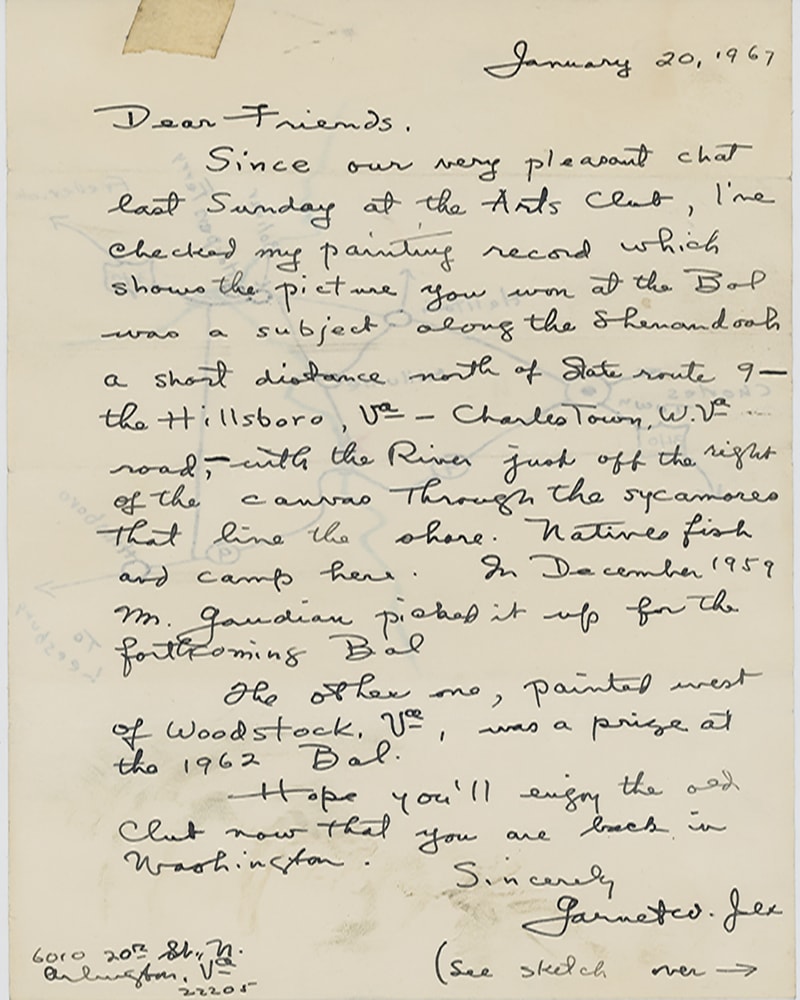 January 20, 1967
Dear Friends.
Since our very pleasant chat
last Sunday at the Arts Club, I've
checked my painting record which
shows the picture you won at the Bal
was a subject along the Shenandoah
a short distance north of State route 9—
the Hillsboro, Va – CharlesTown, W.Va
road,– with the River just off the right
of the canvas through the sycamores
that line the shore. Natives fish
and camp here. In December 1959
Mr. Gaudian picked it up for the
forthcoming Bal
The other one, painted west
of Woodstock, Va, was a prize at
the 1962 Bal.
Hope you'll enjoy the old
Club now that you are back in
Washington.
Sincerely
Garnet W. Jex
6010 20th St., N.
Arlington, Va
22205
(See sketch over →